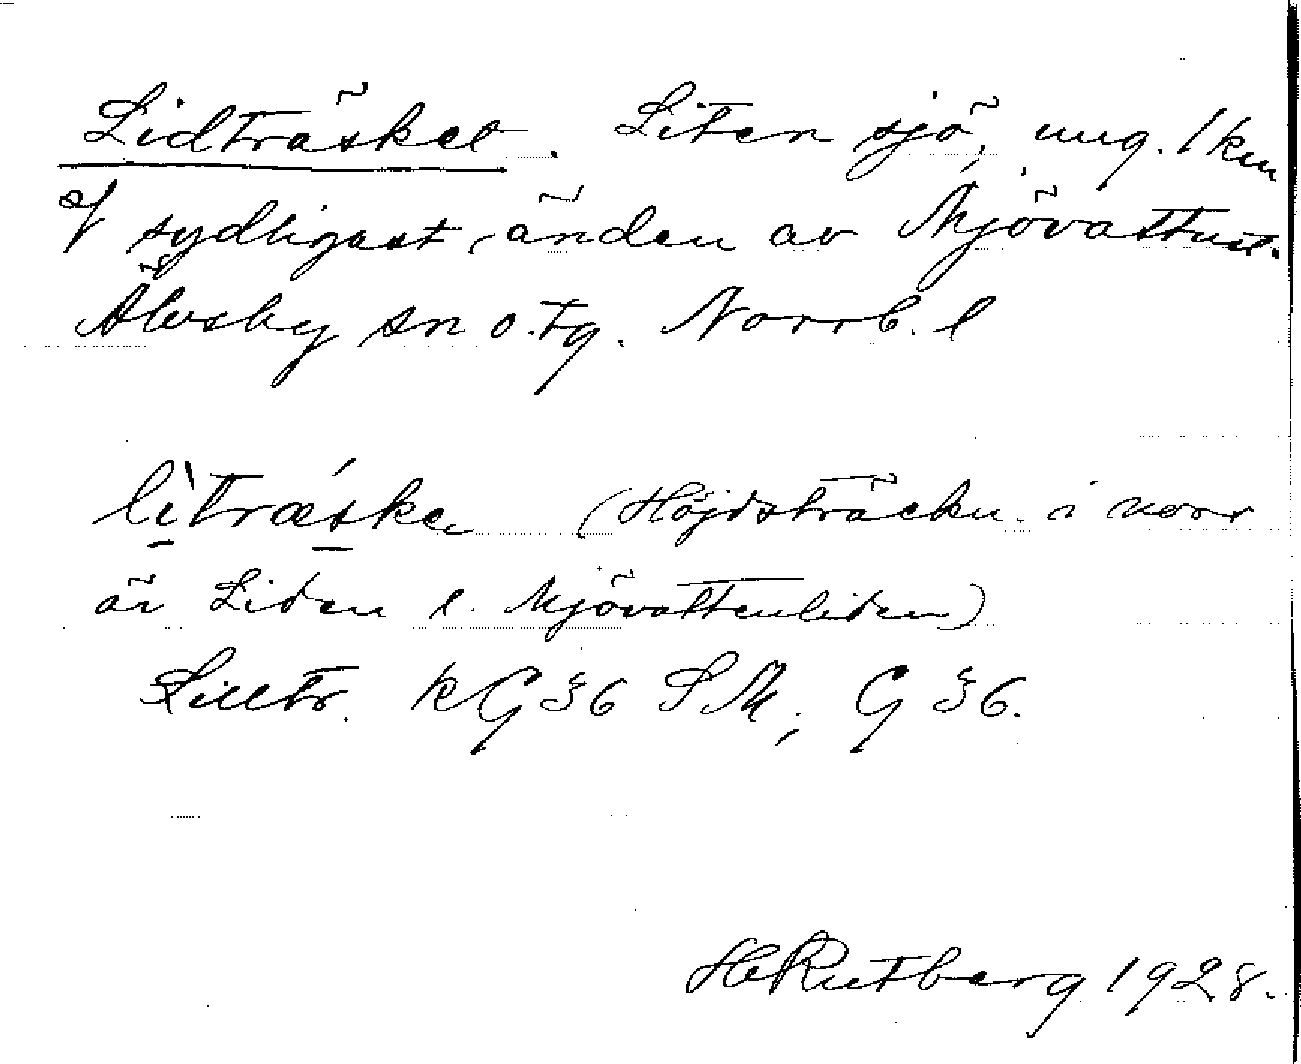 Lidträsket. Liten sjö, ung. 1 km
sydligast, änden av Mjövattnet.
Älvsby sn o. tg. Norrb. l
lìtrǽske (Högsträckn. i norr
är Liden l. Mjövattenliden)
Lilltr. kG 36 SM, G 36.
HRutberg 1928.